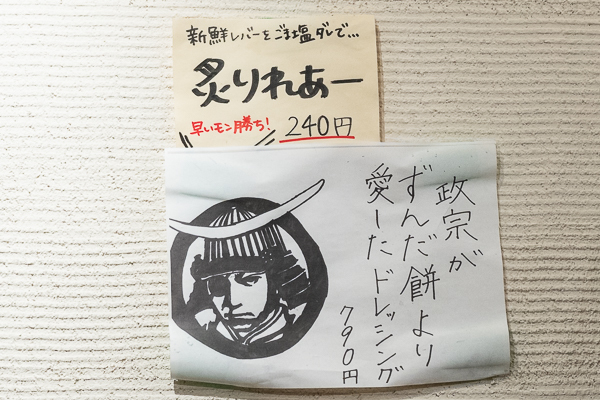 新鮮レバーをごま塩ダレで…
炙りれあー
早いモン勝ち!
240円
政宗が
ずんだ餅より
愛したドレッシング
790円